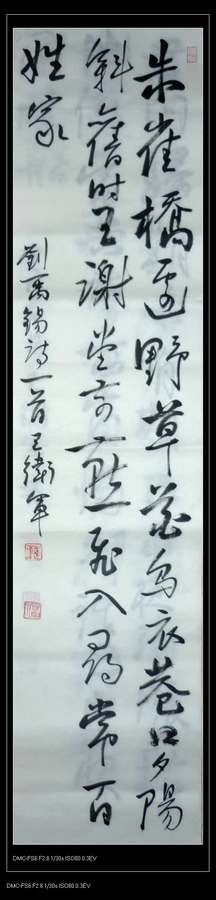 朱雀橋邊野草花烏衣巷口夕陽
斜舊時王謝堂前燕飛入尋常百
姓家
劉禹錫詩一首王衛軍
DMC-FS6 F2.8 1/30s ISO80 0.3EV
DMC-FS6 F2.8 1/30s ISO80 0.3EV